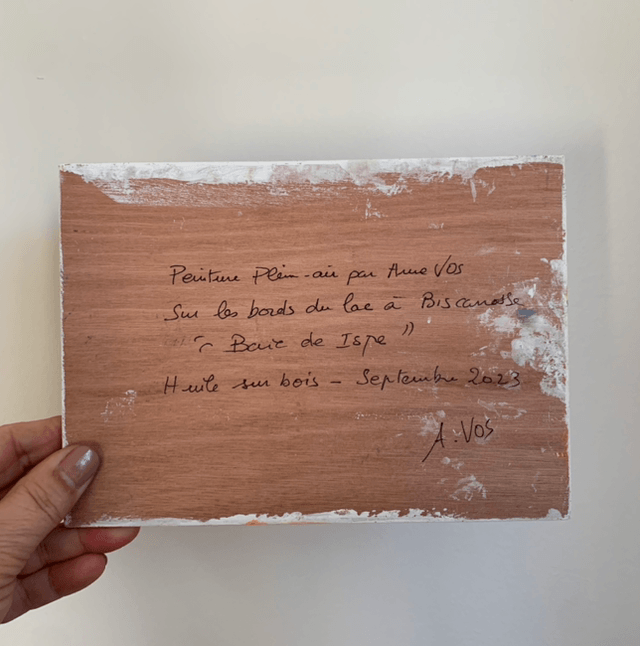 Peinture Plein-air par Anne VOS
Sur les bords du lac à Biscarrosse
" Baie de Ispe "
Huile sur bois - Septembre 2023
A. VOS